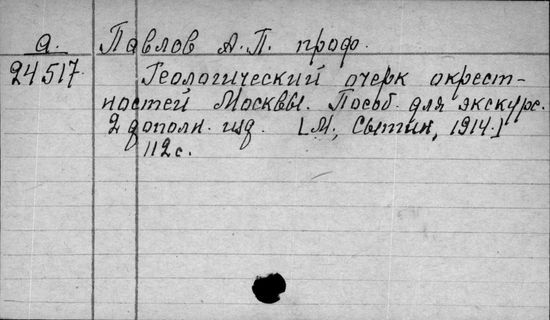 а. Павлов А.П. проф.
24517. Геологический очерк окрест-
ностей Москвы. Пособ. для экскурс.
2 дополн. изд. [М., Сытин, 1914.]
112 с.